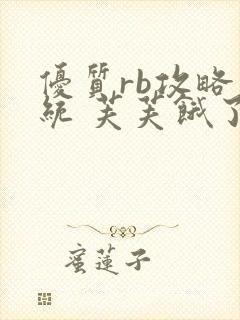 優質rb攻略
統 芙芙餓了
蜜蓮子